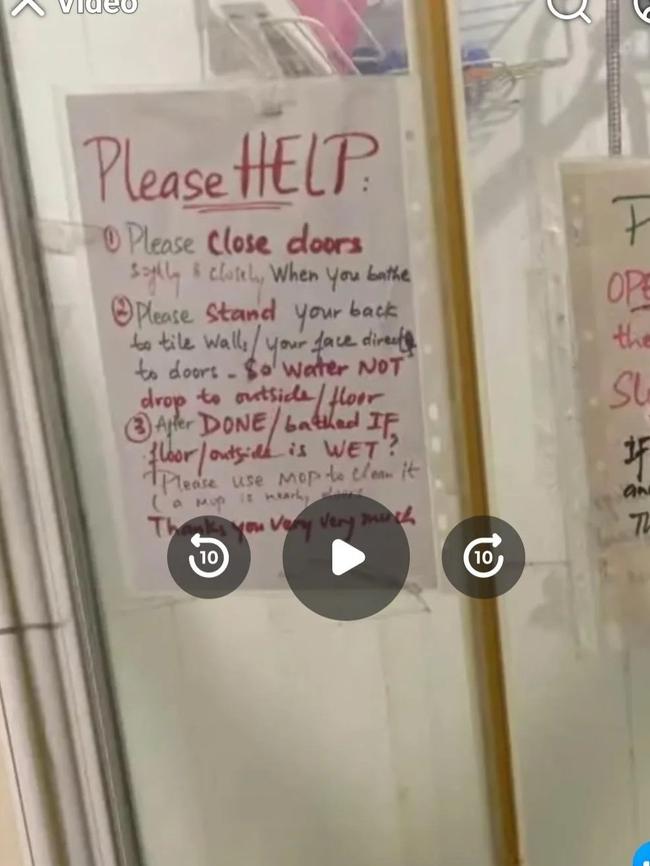 Video
Please HELP:
① Please Close doors
& closely When you bathe
② Please Stand your back
to tile walls/your face directs
to doors - So Water NOT
drop to outside/floor
③ After DONE/bathed IF
floor/outside is WET?
Please use MOP to clean it
(a Mop is nearby doors
Thanks you Very Very much
10
10
P
OPE
the
SL
IF
an
Th